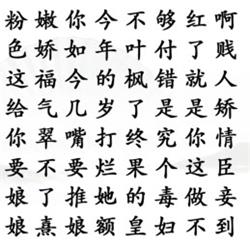 粉嫩你今不够红啊
色娇如年叶付了贱
这福今的枫错就人
给气几岁了是是矫
你翠嘴打终究你情
要不要烂果个这臣
娘了推她的毒做妾
娘熹娘额皇妇不到